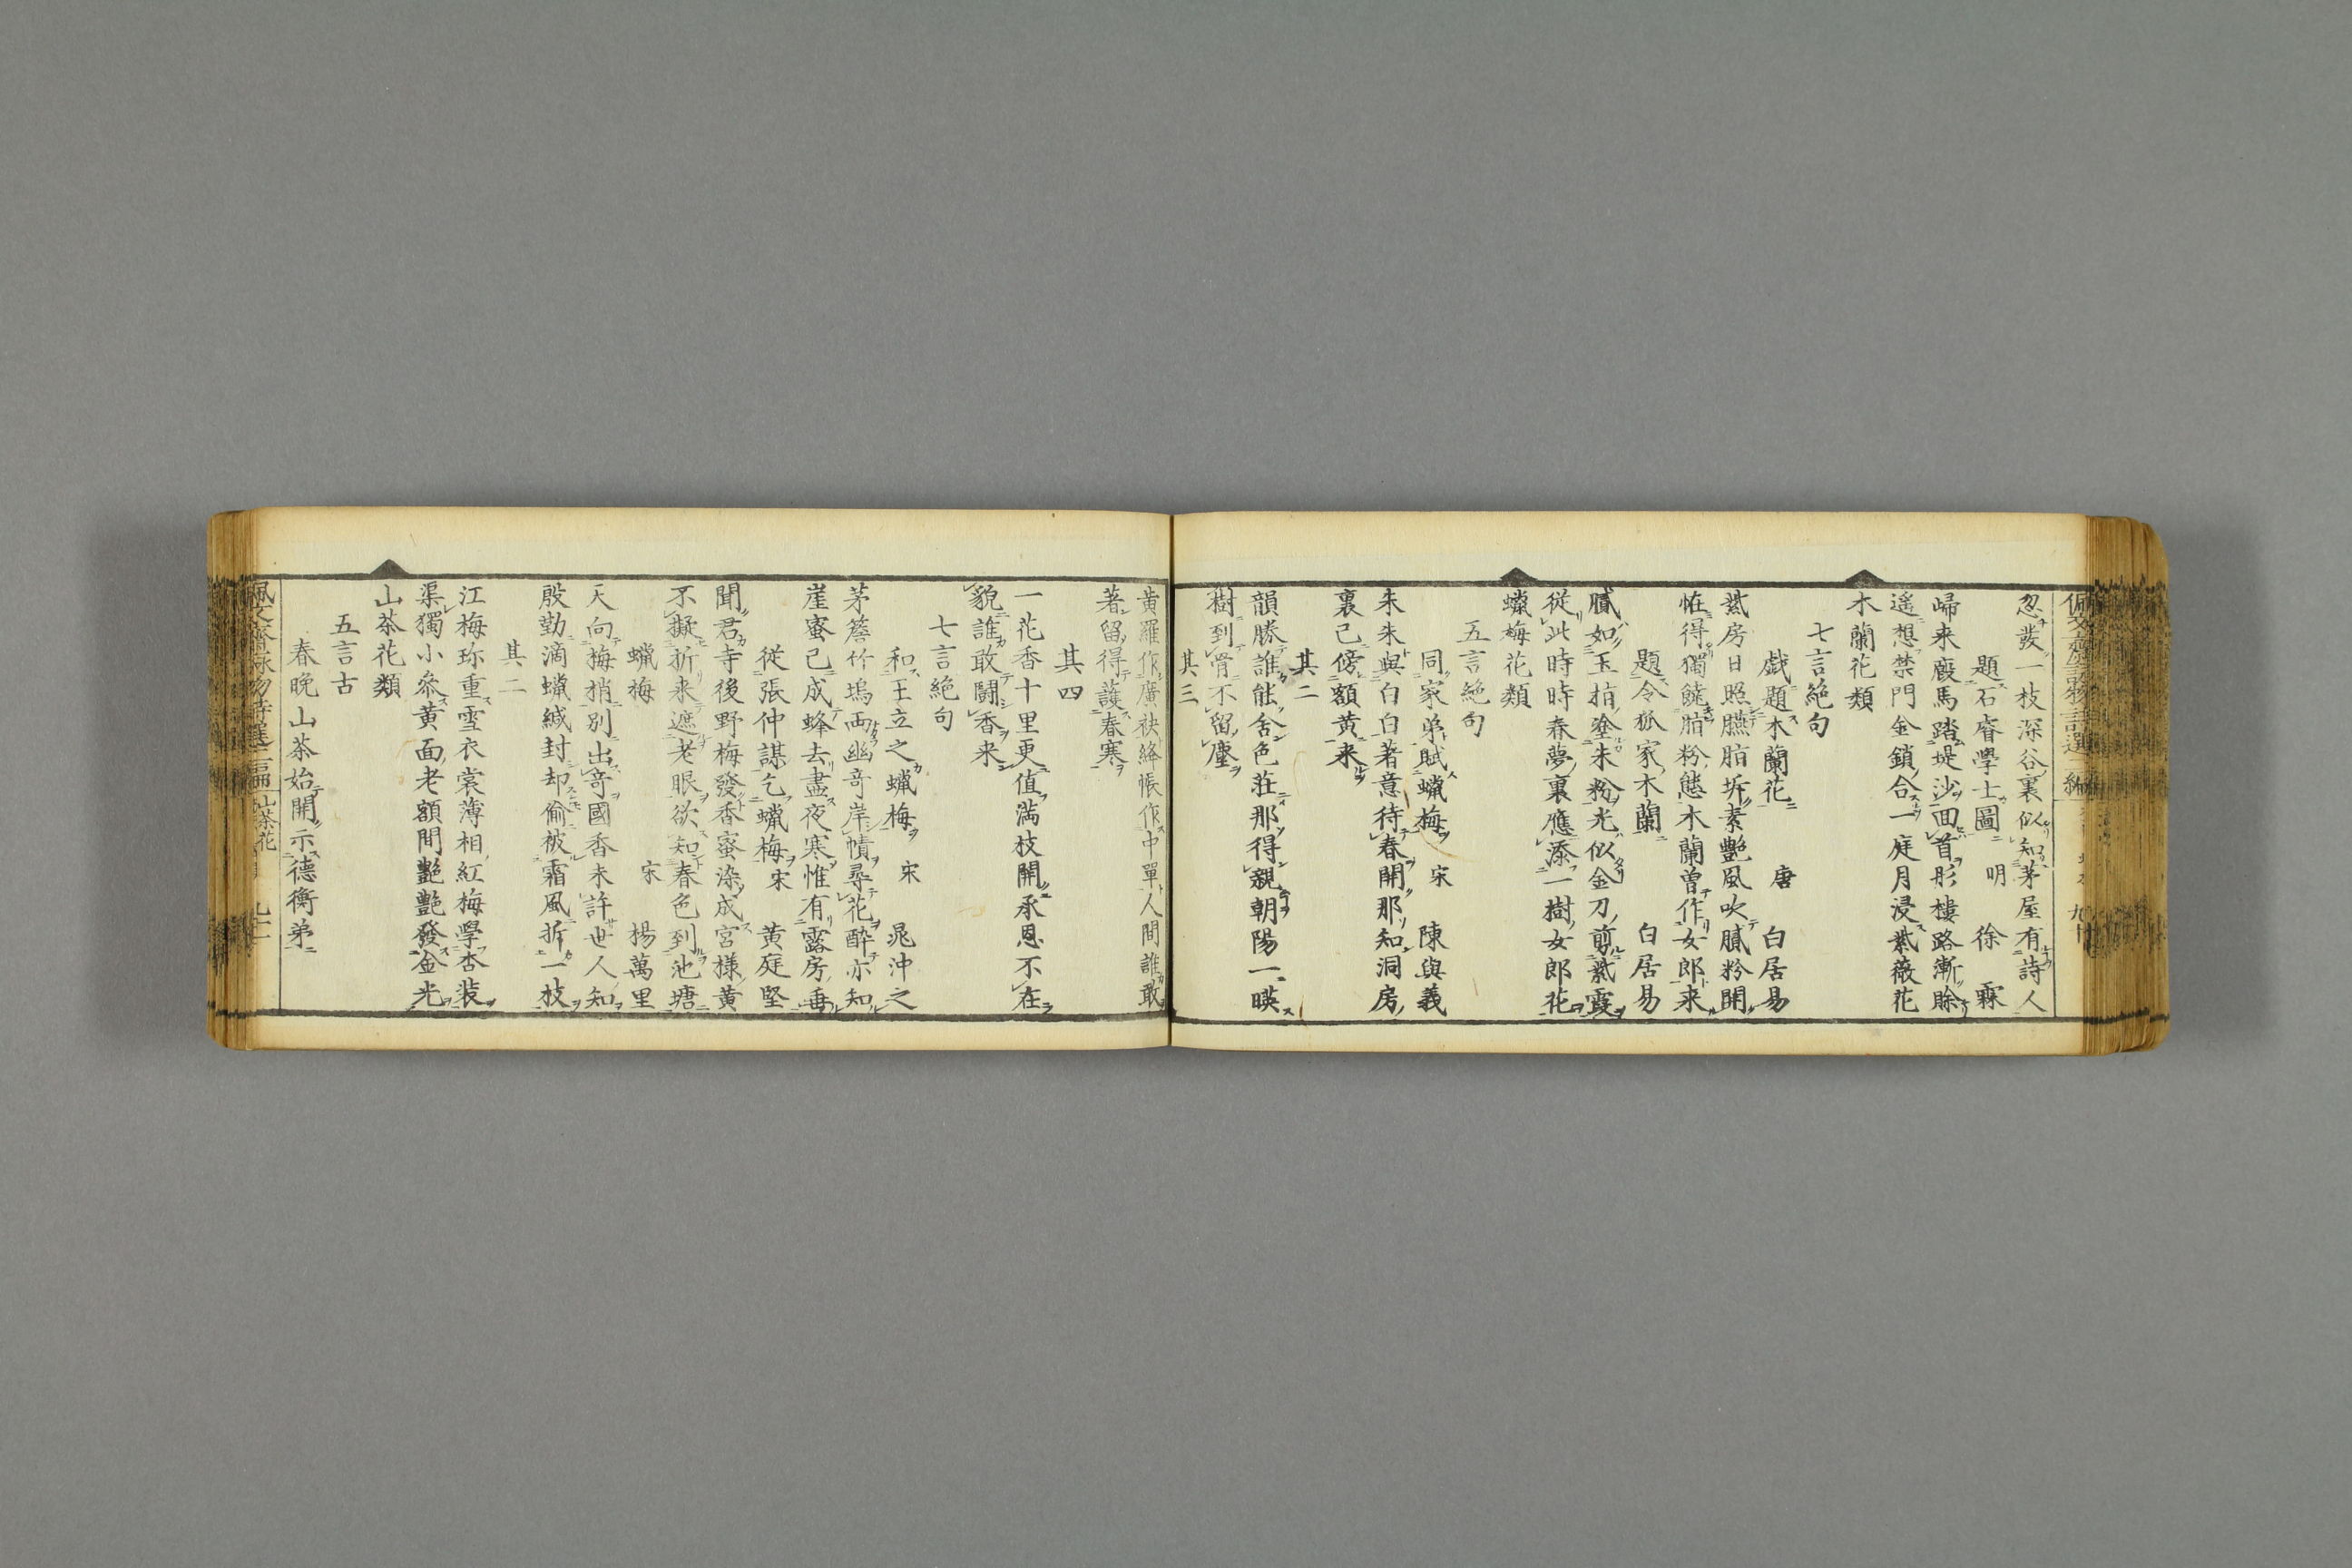 忽發一枝深谷裏似知茅屋有詩人
題石齋學士圖 明 徐霖
歸来廐馬踏堤沙面首彤樓路漸賖
遥想禁門金鎖合一庭月浸紫薇花
木蘭花類
七言絶句
戯題木蘭花 唐 白居易
紫房日照臙脂拆素艶風吹膩粉開
恠得獨饒脂粉態木蘭曽作女郎来
題令狐家木蘭 白居易
膩如玉指塗朱粉光似金刀剪紫霞
従此時時春夢裏應添一樹女郎花
蠟梅花類
五言絶句
同家弟賦蠟梅 宋 陳與義
朱朱與白白著意待春開那知洞房
裏已傍額黄来
其二
韻勝誰能舎色荘那得親朝陽一暎
樹到骨不留塵
其三
黄羅作廣袂絳帳作中單人間誰敢
著留得護春寒
其四
一花香十里更值満枝開承恩不在
貌誰敢鬪香来
七言絶句
和王立之蠟梅 宋 晁沖之
茅簷竹塢兩幽竒岸幘尋花醉亦知
崖蜜已成蜂去盡夜寒惟有露房垂
従張仲謀乞蠟梅 宋 黄庭堅
聞君寺後野梅發香蜜染成宮様黄
不擬折来遮老眼欲知春色到池塘
蠟梅 宋 楊萬里
天向梅梢別出竒國香未許世人知
殷勤滴蠟緘封却偷被霜風拆一枝
其二
江梅珎重雪衣裳薄相紅梅學杏装
渠獨小叅黄面老額間艶艶發金光
山茶花類
五言古
春晩山茶始開示德衡弟